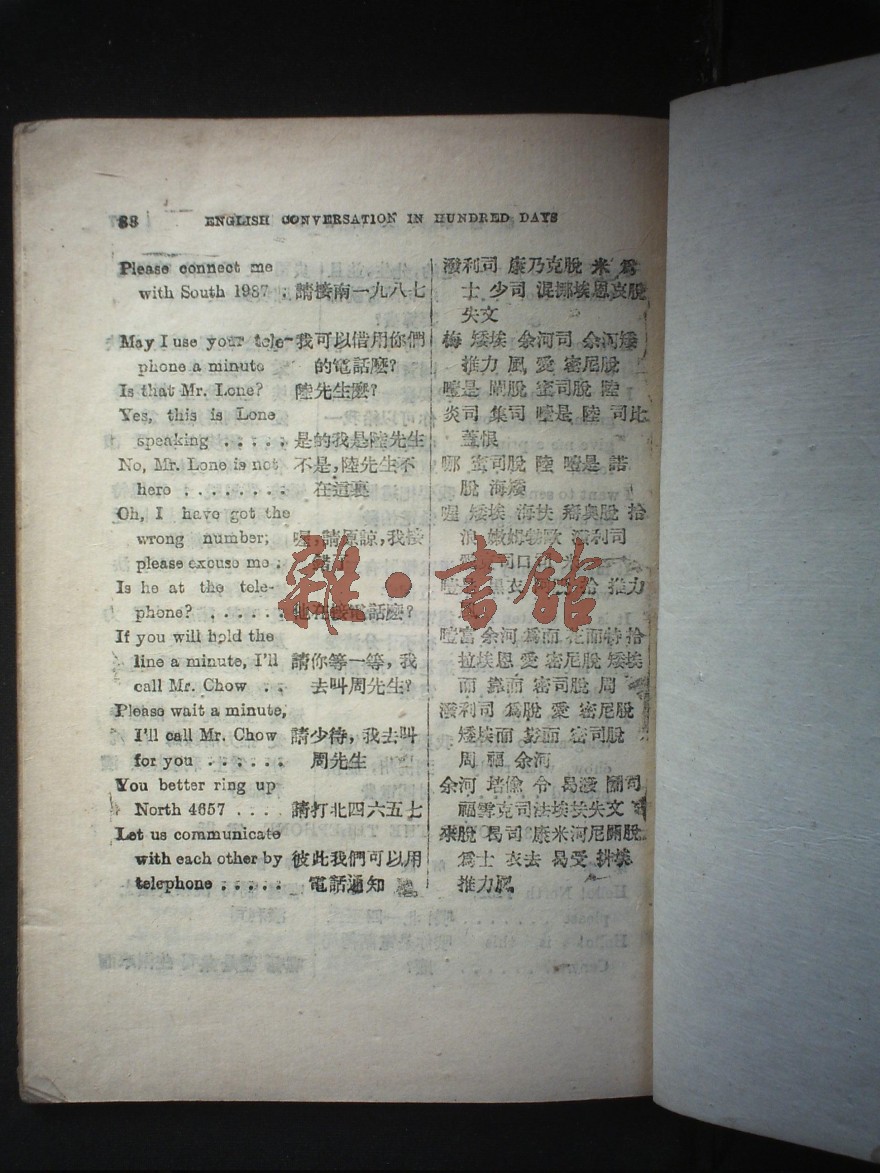 88 ENGLISH CONVERSATION IN HUNDRED DAYS
Please connect me 潑利司 康乃克脫 米 爲
with South 1987 : 請接南一九八七 士 少司 混挪埃恩哀脫
失文
May I use your tele- 我可以借用你們 梅 矮埃 余河司 余河矮
phone a minute : 的電話麽? 推力 風 愛 密尼脫
Is that Mr. Lone? 陸先生麽? 噎是 脫 蜜司脫 陸
Yes, this is Lone 炎司 集司 噎是 陸 司比
speaking . . . . . 是的我是陸先生 恨
No, Mr. Lone is not 不是,陸先生不 哪 蜜司脫 陸 噎是 諾
here . . . . . . . . 在這裏 脫 海矮
Oh, I have got the 喔 矮埃 海扶 奥脫 拾
wrong number; 喔,請原諒,我接 浪 潑利司
please excuse me : 錯了 司口
Is he at the tele- 噎是 黑衣 拾 推力
phone? . . . . . . 他在接電話麽?
If you will hold the 噎富 余河 爲而 花而特 拾
line a minute, I'll 請你等一等, 我 拉埃恩 愛 密尼脫 矮埃
call Mr. Chow . . 去叫周先生? 而 靠而 密司脫 周
Please wait a minute, 潑利司 爲脫 愛 密尼脫
I'll call Mr. Chow 請少待, 我去叫 矮埃而 靠而 密司脫
for you . . . . . . 周先生 周 福 余河
You better ring up 余河 培偸 令 曷潑
North 4657 . . . . 請打北四六五七 福 克司法埃埃失文
Let us communicate 來脫 曷司 康米河尼 脫
with each other by 彼此我們可以用 爲士 衣去 曷受 拼埃
telephone . . . . . 電話通知 推力風
雜·書館